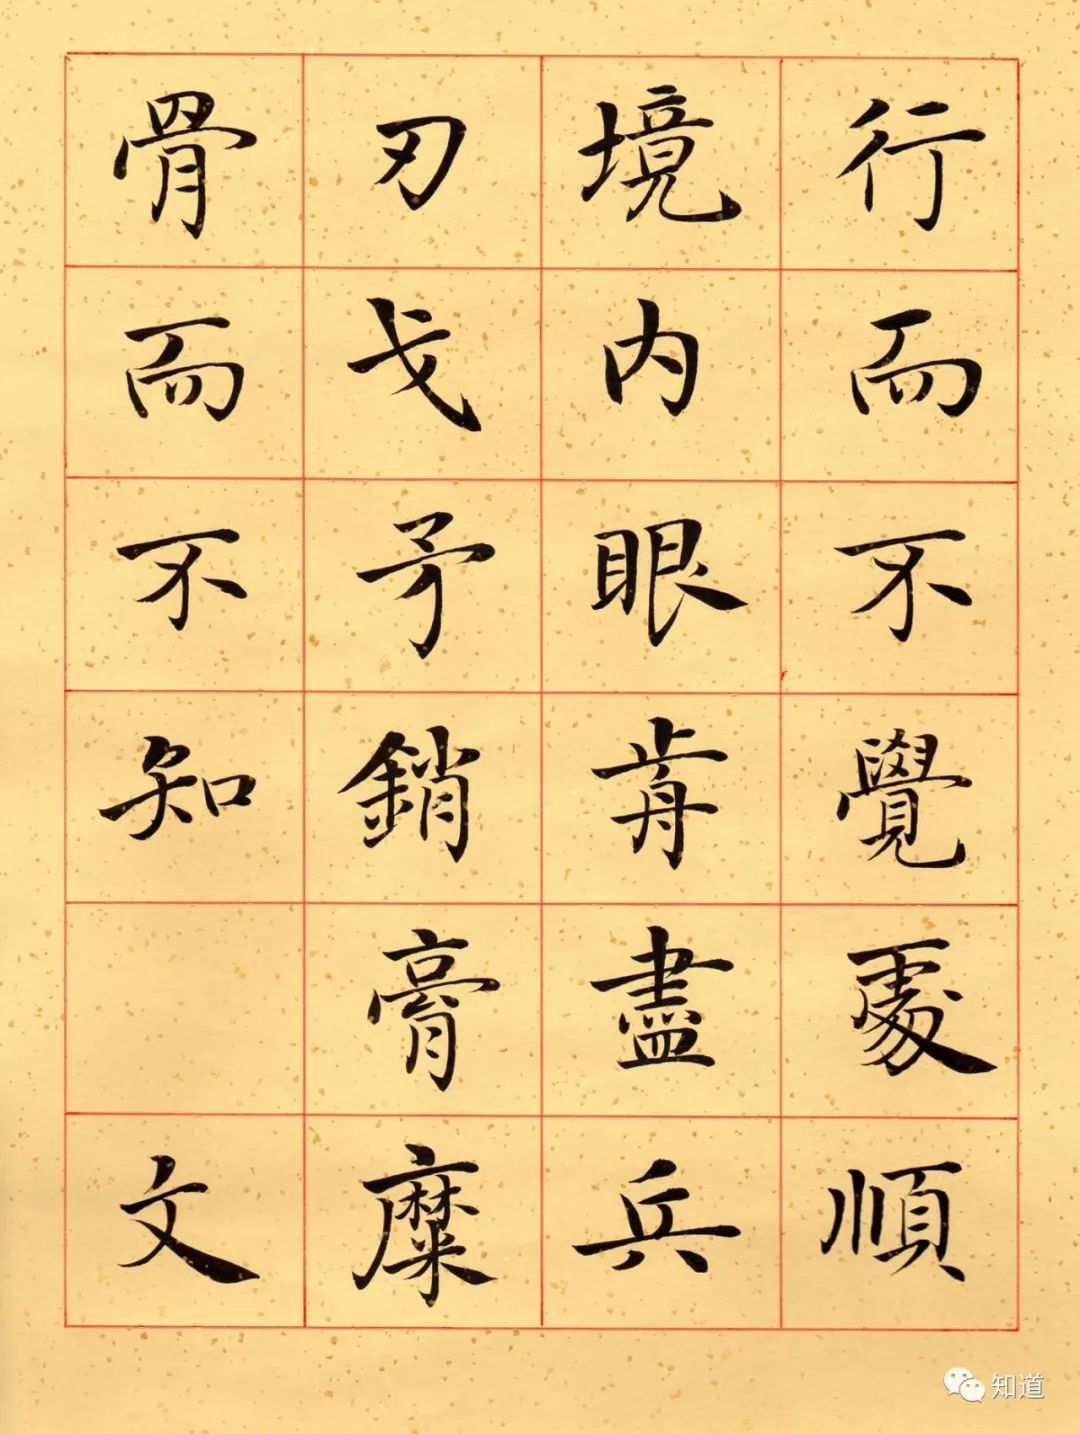 行而不覺處順
境內眼前盡兵
刃戈矛銷膏糜
骨而不知 文
知道